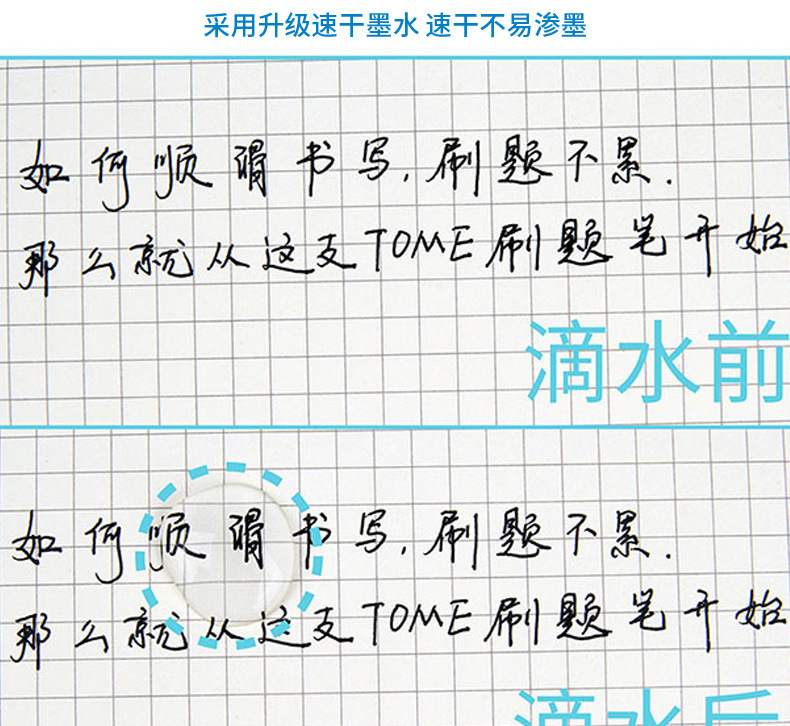 采用升级速干墨水 速干不易渗墨
如何顺滑书写,刷题不累.
那么就从这支TOME刷题笔开始
滴水前
如何顺滑书写,刷题不累.
那么就从这支TOME刷题笔开始
滴水后